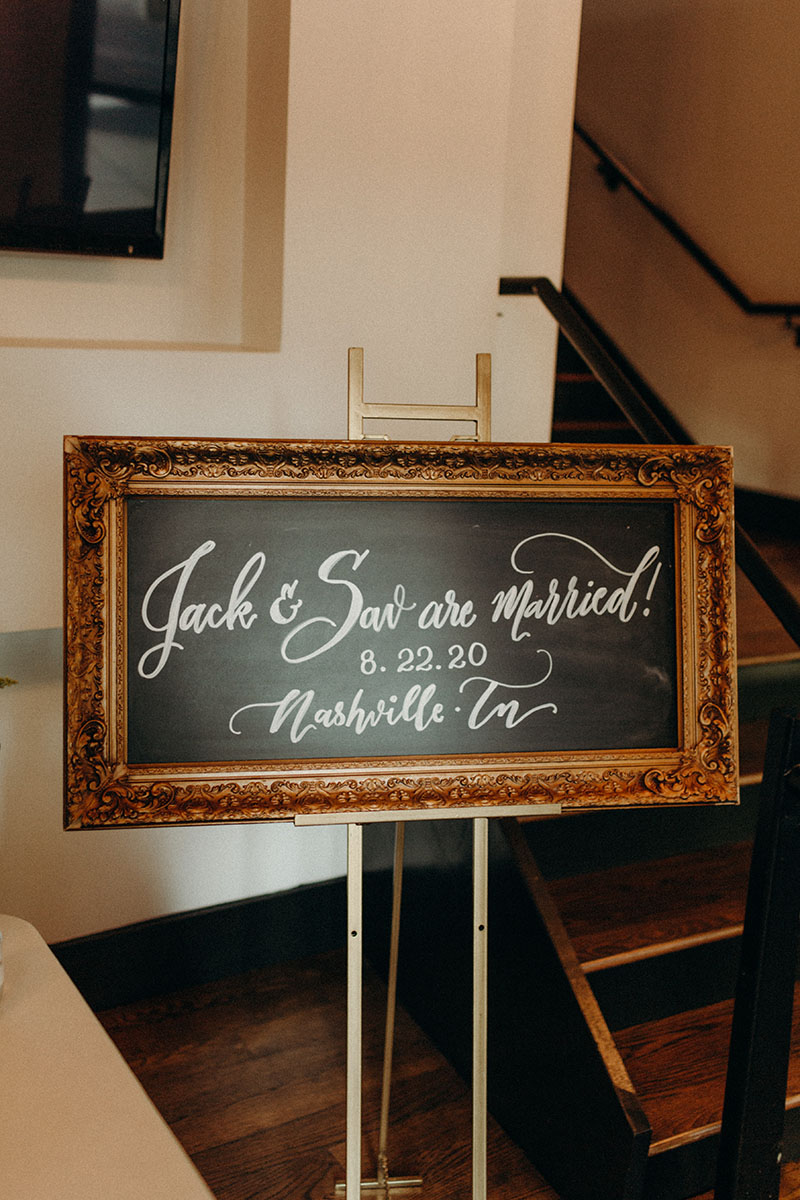 Jack & Sav are Married!
8.22.20
Nashville · Tn